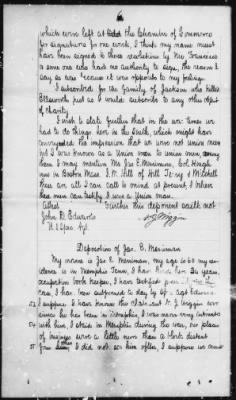 which were left at the Chamber of Commerce
for signatures for one week, I think my name must
have been signed to those resolutions by Mr Francisco
or some one who had no authority to sign, the reason I
say so was because it was opposite to my feelings.
I subscribed for the family of Jackson who killed
Ellsworth just as I would subscribe to any other object
of charity.
I wish to state further that in the war times we
had to do things here in the South, which might have
conveyed the impression that we were not union men
yet I was known as a Union man to union men, among
them I may mention Mr Jas E. Merriman, Col Hough
now in Boston Mass. I. N. Hill of Hill Terry & Mitchell
these are all I can call to mind at present, I when
these men can testify I was a Union man.
Attest Further this deponent saith not
John B. Edwards N J Wiggin
U.S. Spec. Agt.
Deposition of Jas. E. Merriman
My name is Jas E. Merriman, my age is 60 my resi
dence is in Memphis Tenn, I have lived here 34 years,
occupation book keeper, I have testified
case, I have been subpoenaed to day by spl agt Edwards.
I suppose I have known the claimant N. J. Wiggin ever
since he has been in Memphis, I was very intimate
with him, I staid in Memphis during the war, our places
of business were a little more than a block distant
from each other I did not see him often, I suppose we were